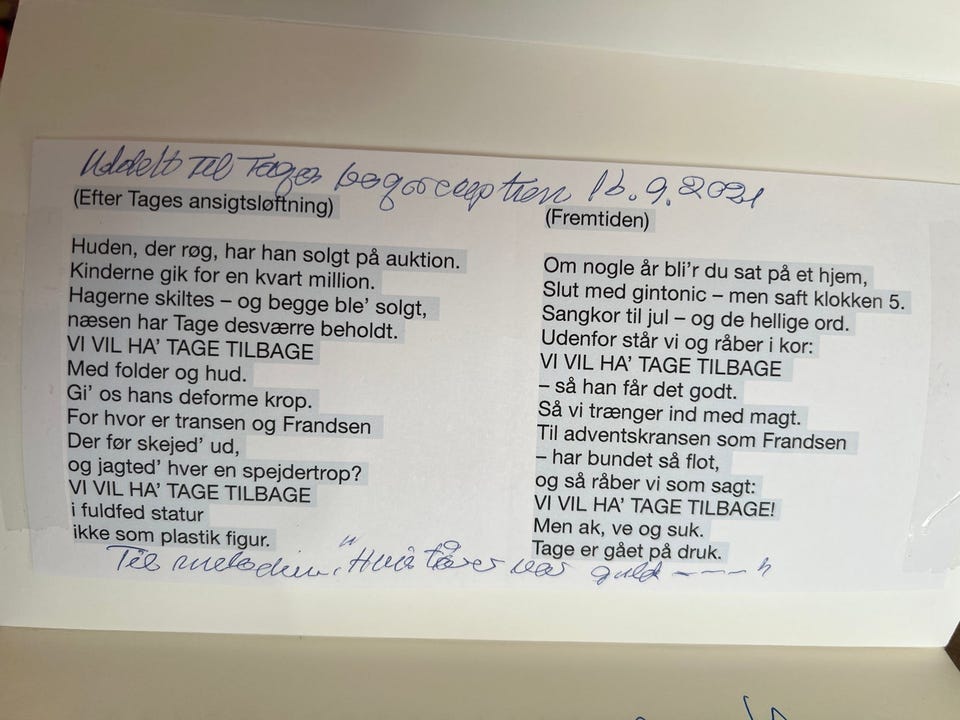 Uddelt til Tages bogreception 16.9.2021
(Efter Tages ansigtsløftning)
Huden, der røg, har han solgt på auktion.
Kinderne gik for en kvart million.
Hagerne skiltes – og begge ble’ solgt,
næsen har Tage desværre beholdt.
VI VIL HA’ TAGE TILBAGE
Med folder og hud.
Gi’ os hans deforme krop.
For hvor er transen og Frandsen
Der før skejed’ ud,
og jagted’ hver en spejdertrop?
VI VIL HA’ TAGE TILBAGE
i fuldfed statur
ikke som plastik figur.
(Fremtiden)
Om nogle år bli’r du sat på et hjem,
Slut med gintonic – men saft klokken 5.
Sangkor til jul – og de hellige ord.
Udenfor står vi og råber i kor:
VI VIL HA’ TAGE TILBAGE
– så han får det godt.
Så vi trænger ind med magt.
Til adventskransen som Frandsen
– har bundet så flot,
og så råber vi som sagt:
VI VIL HA’ TAGE TILBAGE!
Men ak, ve og suk.
Tage er gået på druk.
Til melodien "Hvis tårer var guld ----"